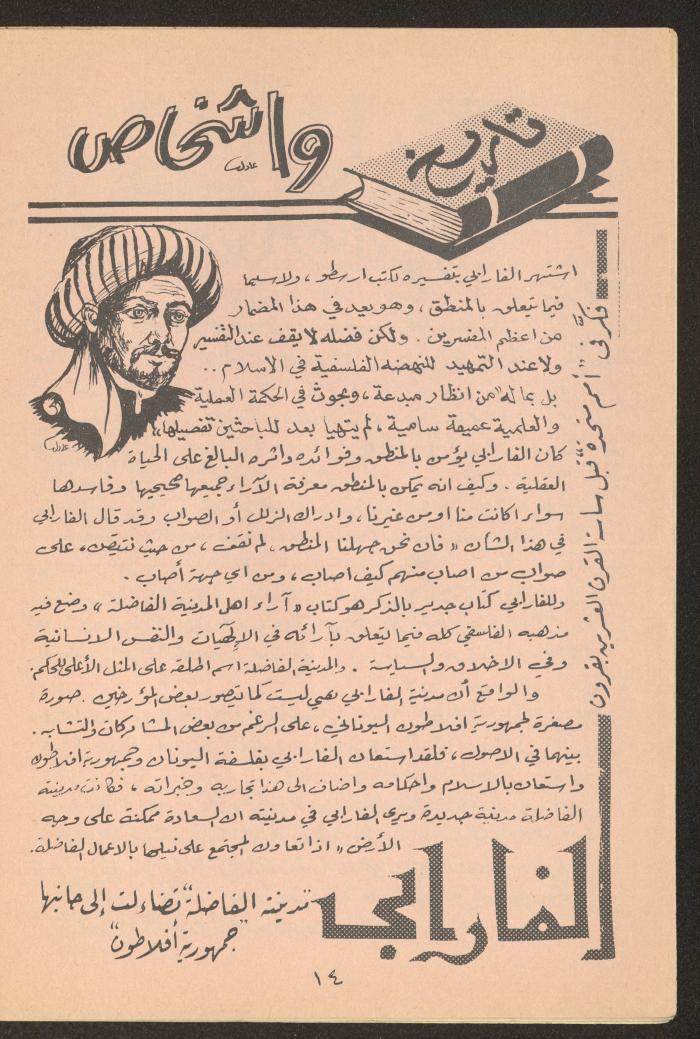 تاريخ
واشخاص
عادل
فكّر في "أمم متحدة" قبل ساسة القرن العشرين بقرون
اشتهر الفارابي بتفسيره لكتب ارسطو ، ولاسيما
فيما يتعلق بالمنطق ، وهو يعد في هذا المضمار
من اعظم المفسرين . ولكن فضله لا يقف عند التفسير
ولا عند التمهيد للنهضه الفلسفية في الاسلام ..
بل بما له "من انظار مبدعة ، وبحوث في الحكمة العملية
والعلمية عميقة سامية ، لم يتهيا بعد للباحثين تفصيلها"
كان الفارابي يؤمن بالمنطق وفوائده واثره البالغ على الحياة
العقلية . وكيف انه يمكن بالمنطق معرفة الآراء جميعها صحيحها وفاسدها
سواء اكانت منا او من غيرنا ، وادراك الزلل أو الصواب وقد قال الفارابي
في هذا الشأن « فان نحن جهلنا المنطق ، لم نقف ، من حيث نتيقن ، على
صواب من اصاب منهم كيف اصاب ، ومن اي جهة أصاب .
وللفارابي كتاب جدير بالذكر هو كتاب « آراء اهل المدينة الفاضلة » وضع فيه
مذهبه الفلسفي كله فيما يتعلق بآرائه في الإلهيات والنفس الانسانية
وفي الاخلاق والسياسة . والمدينة الفاضلة اسم اطلقه على المثل الأعلى للحكم.
والواقع أن مدينة الفارابي هي ليست كما تصور بعض المؤرخين . صورة
مصغرة لجمهورية افلاطون اليوناني ، على الرغم من بعض المشاركات والتشابه .
بينهما في الاصول ، فلقد استعان الفارابي بفلسفة اليونان وجمهورية افلاطون
واستعان بالاسلام واحكامه واضاف الى هذا تجاربه وخبراته ، فكانت مدينته
الفاضلة مدينة جديدة ويرى الفارابي في مدينته ان السعادة ممكنة على وجه
الأرض « اذا تعاون المجتمع على نيلها بالاعمال الفاضلة .
الفارابي
"مدينته الفاضلة" تضاءلت إلى جانبها
"جمهورية أفلاطون"
١٤